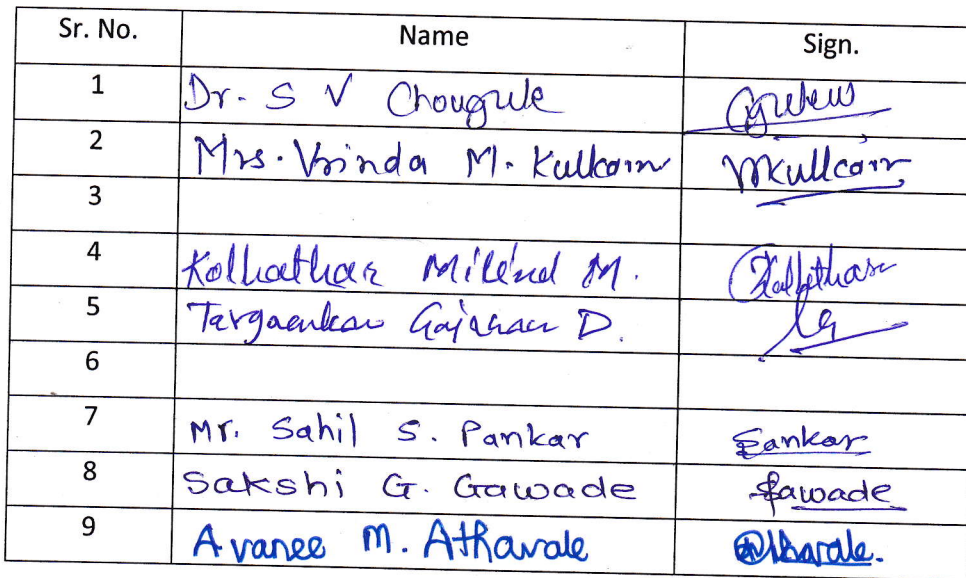 Sr. No. Name Sign.
1 Dr. S V Chougule
2 Mrs. Vrinda M. Kulkarni Mkulkarni
3
4 Kolhatkar Milind M. Kolhatkar
5 Tergaonkar Gajanan D.
6
7 Mr. Sahil S. Pankar Pankar
8 Sakshi G. Gawade Gawade
9 Avanee M. Athavale Athavale.